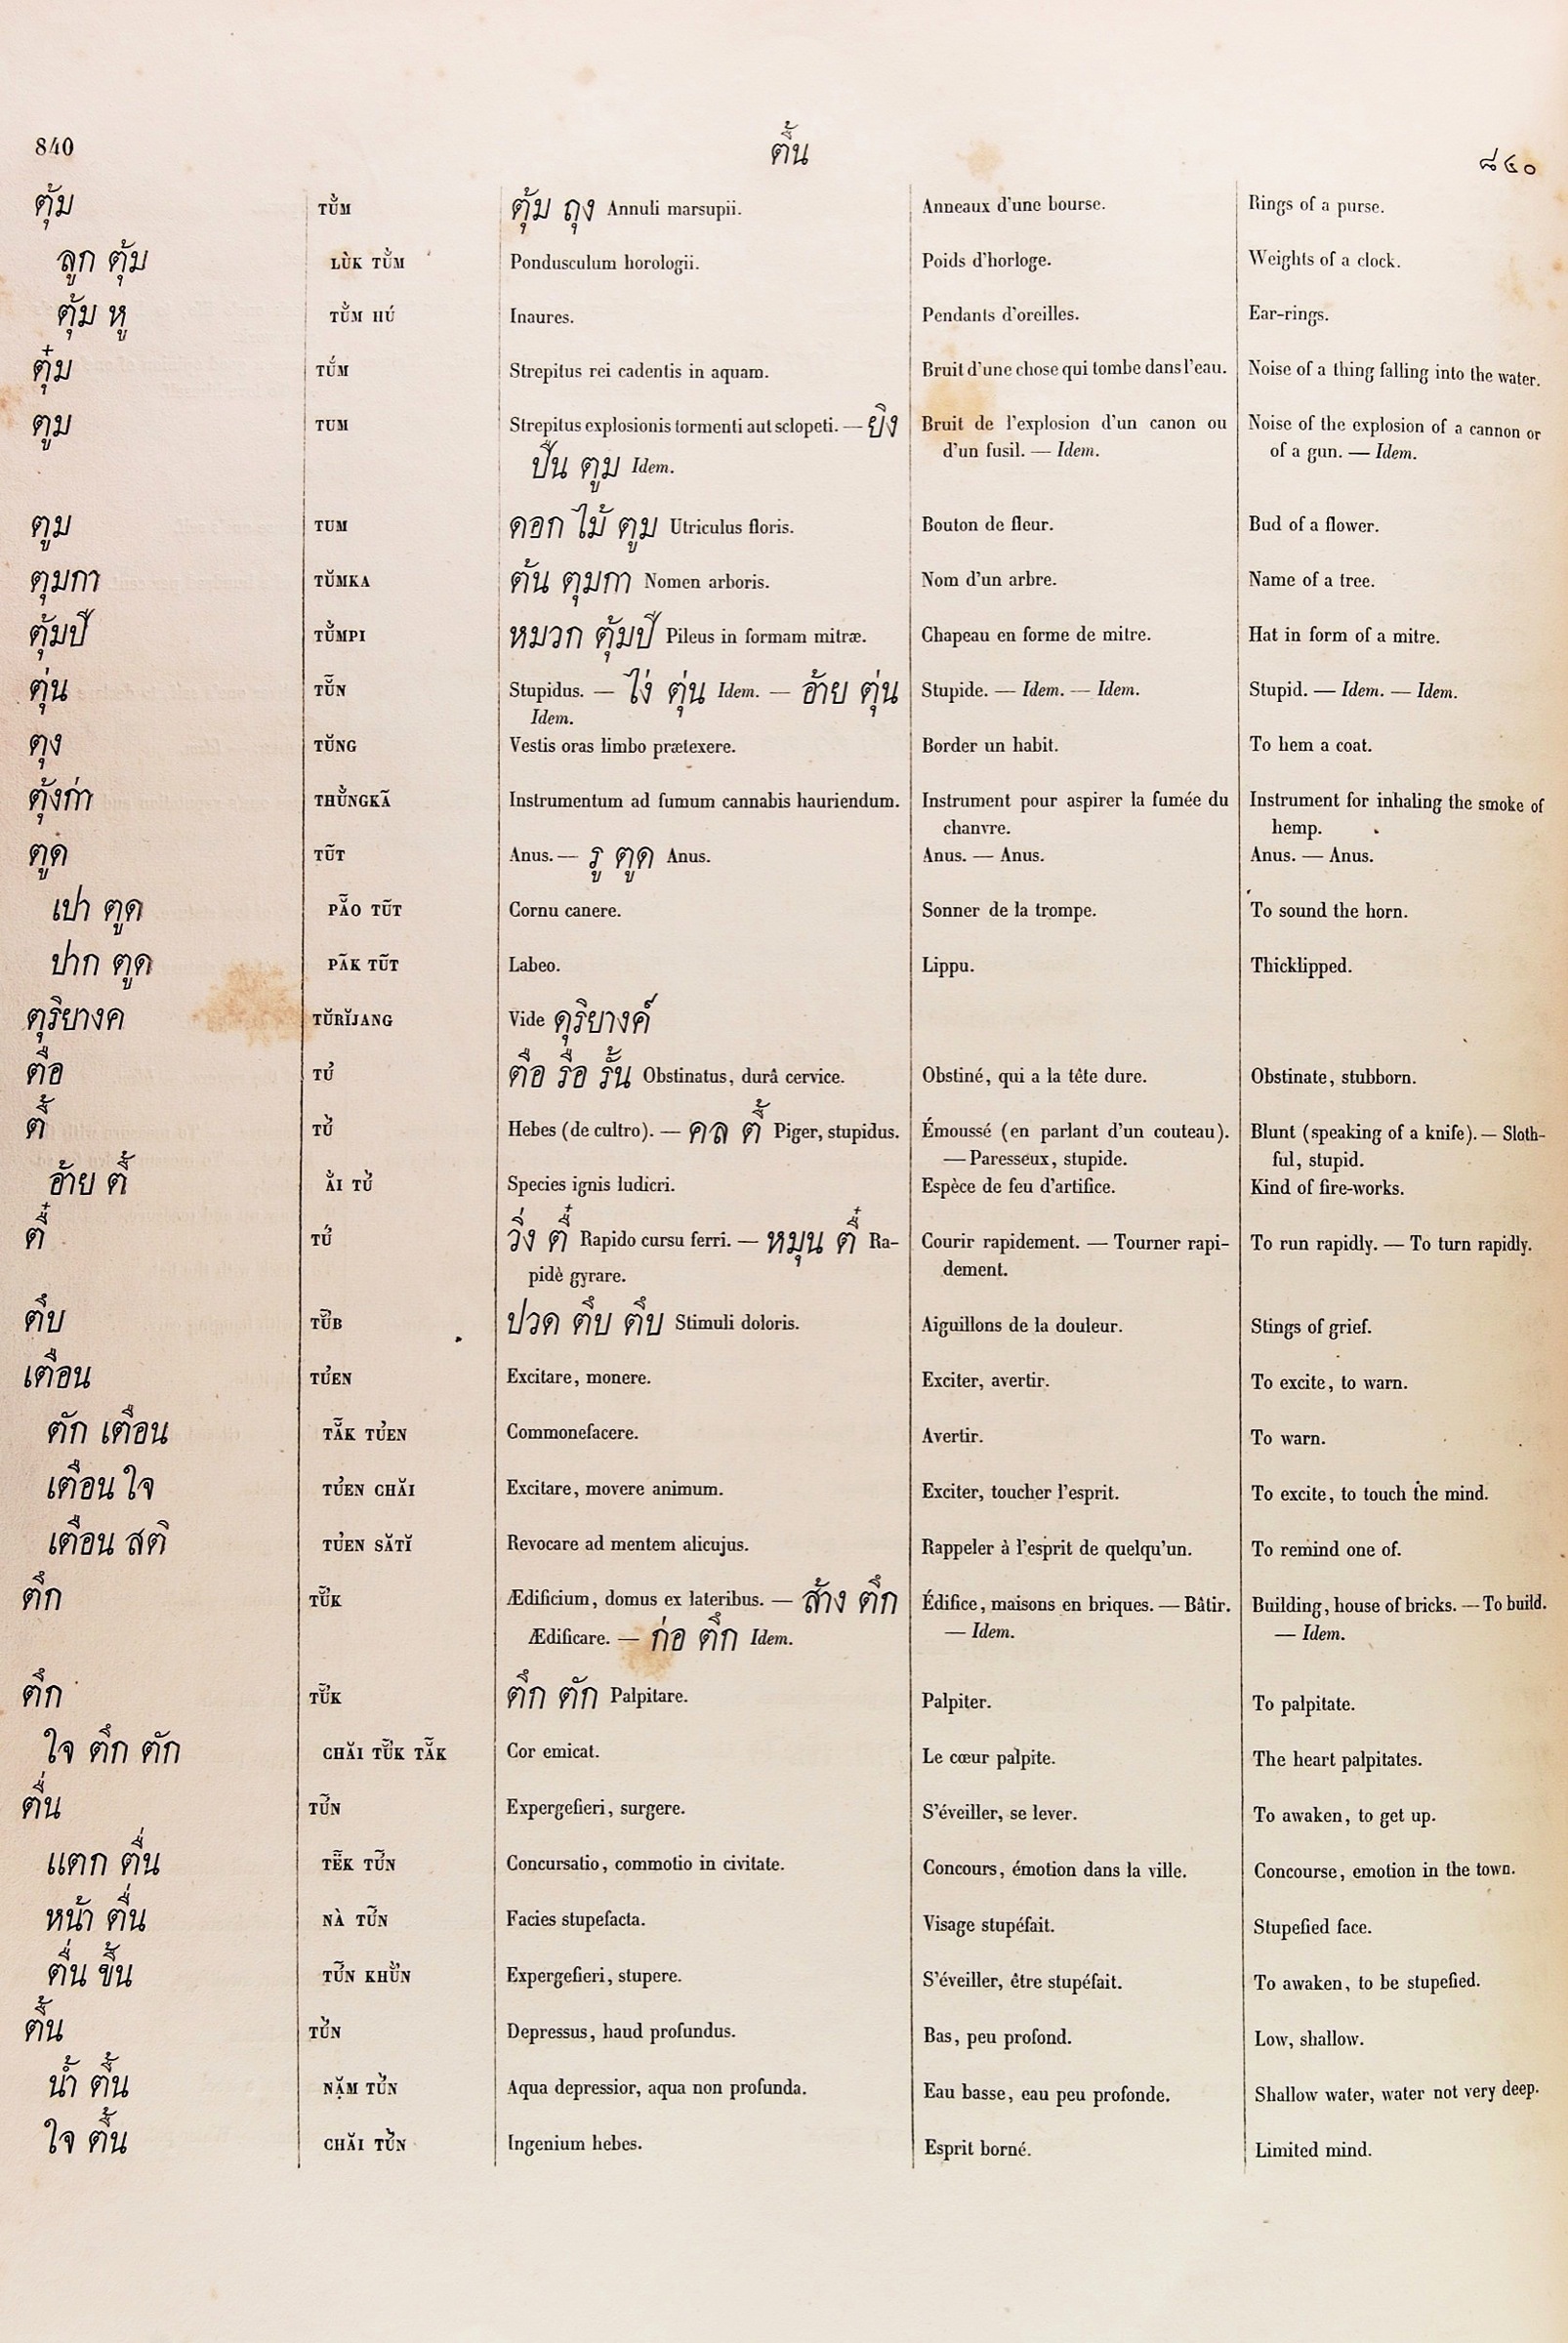 840 ตื้น ๘๔๐
ตุ้ม TŬ̀M ตุ้ม ถุง Annuli marsupii. Anneaux d'une bourse. Rings of a purse.
ลูก ตุ้ม LÙK TŬ̀M Pondusculum horologii. Poids d'horloge. Weights of a clock.
ตุ้ม หู TŬ̀M HÚ Inaures. Pendants d'oreilles. Ear-rings.
ตุ๋ม TŬ́M Strepitus rei cadentis in aquam. Bruit d'une chose qui tombe dans l'eau. Noise of a thing falling into the water.
ตูม TUM Strepitus explosionis tormenti aut sclopeti. — ยิง Bruit de l'explosion d'un canon ou Noise of the explosion of a cannon or
ปืน ตูม Idem. d'un fusil. — Idem. of a gun. — Idem.
ตูม TUM ดอก ไม้ ตูม Utriculus floris. Bouton de fleur. Bud of a flower.
ตุมกา TŬMKA ต้น ตุมกา Nomen arboris. Nom d'un arbre. Name of a tree.
ตุ้มปี TŬ̀MPI หมวก ตุ้มปี Pileus in formam mitræ. Chapeau en forme de mitre. Hat in form of a mitre.
ตุ่น TŬ̃N Stupidus. — ไง่ ตุ่น Idem. — อ้าย ตุ่น Stupide. — Idem. — Idem. Stupid. — Idem. — Idem.
Idem.
ตุง TŬNG Vestis oras limbo prætexere. Border un habit. To hem a coat.
ตุ้งก่า THŬ̀NGKÃ Instrumentum ad fumum cannabis hauriendum. Instrument pour aspirer la fumée du Instrument for inhaling the smoke of
chanvre. hemp.
ตูด TŨT Anus. — รู ตูด Anus. Anus. — Anus. Anus. — Anus.
เปา ตูด PÃO TŨT Cornu canere. Sonner de la trompe. To sound the horn.
ปาก ตูด PÃK TŨT Labeo. Lippu. Thicklipped.
ตุริยางค TŬRĬJANG Vide ดุริยางค์
ตือ TU̓ ตือ รือ รั้น Obstinatus, durâ cervice. Obstiné, qui a la tête dure. Obstinate, stubborn.
ตื้ TU̓̀ Hebes (de cultro). — คล ตื้ Piger, stupidus. Émoussé (en parlant d'un couteau). Blunt (speaking of a knife). — Sloth-
— Paresseux, stupide. ful, stupid.
อ้าย ตื้ ÀI TU̓̀ Species ignis ludicri. Espèce de feu d'artifice. Kind of fire-works.
ตื๋ TU̓́ วิ่ง ตื๋ Rapido cursu ferri. — หมุน ตื๋ Ra- Courir rapidement. — Tourner rapi- To run rapidly. — To turn rapidly.
pidè gyrare. dement.
ตึบ TŬ̃B ปวด ตึบ ตึบ Stimuli doloris. Aiguillons de la douleur. Stings of grief.
เตือน TU̓EN Excitare, monere. Exciter, avertir. To excite, to warn.
ตัก เตือน TẴK TU̓EN Commonefacere. Avertir. To warn.
เตือน ใจ TU̓EN CHĂI Excitare, movere animum. Exciter, toucher l'esprit. To excite, to touch the mind.
เตือน สติ TU̓EN SĂTĬ Revocare ad mentem alicujus. Rappeler à l'esprit de quelqu'un. To remind one of.
ตึก TŬ̃K Ædificium, domus ex lateribus. — ส้าง ตึก Édifice, maisons en briques. — Bâtir. Building, house of bricks. — To build.
Ædificare. — ก่อ ตึก Idem. — Idem. — Idem.
ตึก TŬ̃K ตึก ตัก Palpitare. Palpiter. To palpitate.
ใจ ตึก ตัก CHĂI TŬ̃K TẴK Cor emicat. Le cœur palpite. The heart palpitates.
ตื่น TŨ̓N Expergefieri, surgere. S'éveiller, se lever. To awaken, to get up.
แตก ตื่น TẼK TŨ̓N Concursatio, commotio in civitate. Concours, émotion dans la ville. Concourse, emotion in the town.
หน้า ตื่น NÀ TŨ̓N Facies stupefacta. Visage stupéfait. Stupefied face.
ตื่น ขึ้น TŨ̓N KHŬ̀N Expergefieri, stupere. S'éveiller, être stupéfait. To awaken, to be stupefied.
ตื้น TU̓̀N Depressus, haud profundus. Bas, peu profond. Low, shallow.
น้ำ ตื้น NẶM TU̓̀N Aqua depressior, aqua non profunda. Eau basse, eau peu profonde. Shallow water, water not very deep.
ใจ ตื้น CHĂI TU̓̀N Ingenium hebes. Esprit borné. Limited mind.